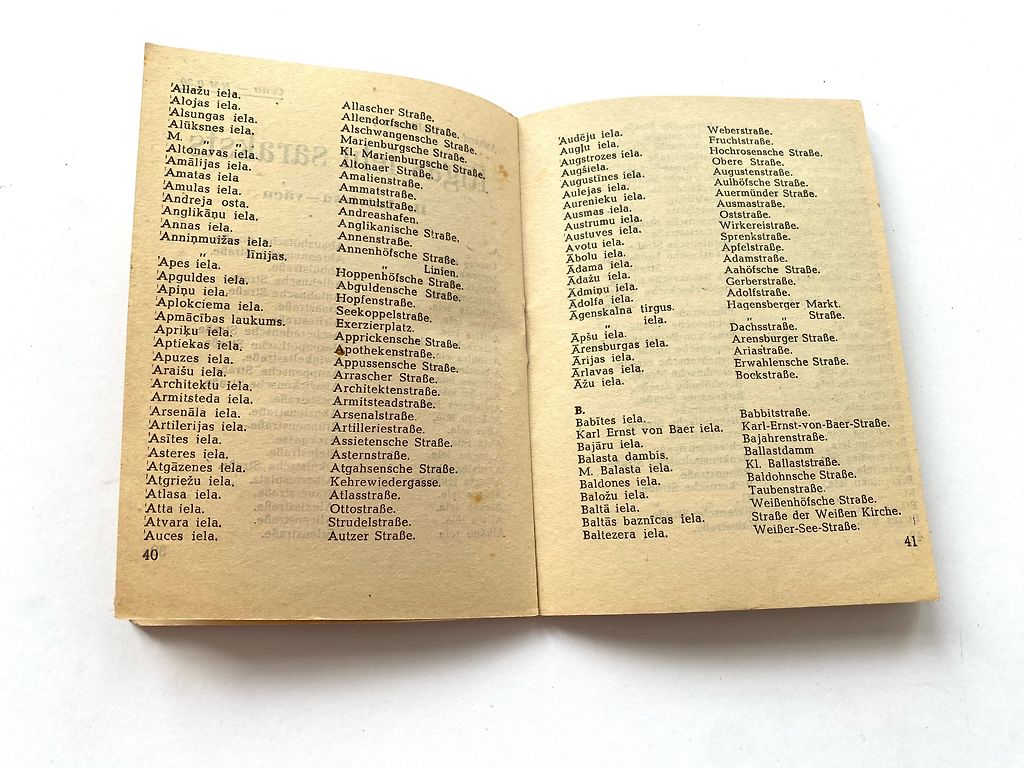 'Allažu iela. Allascher Straße.
'Alojas iela. Allendorfsche Straße.
'Alsungas iela. Alschwangensche Straße.
'Alūksnes iela. Marienburgsche Straße.
M. „ „ Kl. Marienburgsche Straße.
'Altonavas iela. Altonaer Straße.
'Amālijas iela. Amalienstraße.
'Amatas iela Ammatstraße.
'Amulas iela. Ammulstraße.
'Andreja osta. Andreashafen.
'Anglikāņu iela. Anglikanische Straße.
'Annas iela. Annenstraße.
'Anniņmuižas iela. Annenhöfsche Straße.
„ līnijas. „ Linien.
'Apes iela. Hoppenhöfsche Straße.
'Apguldes iela. Abguldensche Straße.
'Apiņu iela. Hopfenstraße.
'Aplokciema iela. Seekoppelstraße.
'Apmācības laukums. Exerzierplatz.
'Apriķu iela. Apprickensche Straße.
'Aptiekas iela. Apothekenstraße.
'Apuzes iela. Appussensche Straße.
'Araišu iela. Arrascher Straße.
'Architektu iela. Architektenstraße.
'Armitsteda iela. Armitsteadstraße.
'Arsenāla iela. Arsenalstraße.
'Artilerijas iela. Artilleriestraße.
'Asītes iela. Assietensche Straße.
'Asteres iela. Asternstraße.
'Atgāzenes iela. Atgahsensche Straße.
'Atgriežu iela, Kehrewiedergasse.
'Atlasa iela. Atlasstraße.
'Atta iela. Ottostraße.
'Atvara iela. Strudelstraße.
'Auces iela. Autzer Straße.
40
'Audēju iela. Weberstraße.
Augļu iela. Fruchtstraße.
Augstrozes iela. Hochrosensche Straße.
Augšiela. Obere Straße.
Augustīnes iela. Augustenstraße.
Aulejas iela. Aulhöfsche Straße.
Aurenieku iela. Auermünder Straße.
Ausmas iela. Ausmastraße.
Austrumu iela. Oststraße.
Austuves iela. Wirkereistraße.
Avotu iela. Sprenkstraße.
Ābolu iela. Apfelstraße.
Ādama iela. Adamstraße.
Ādažu iela. Aahöfsche Straße.
Ādmiņu iela. Gerberstraße.
Ādolfa iela. Adolfstraße.
Āgenskalna tirgus. Hagensberger Markt.
„ iela. „ „ Straße.
Āpšu iela. Dachsstraße.
Ārensburgas iela. Arensburger Straße.
Ārijas iela. Ariastraße.
Ārlavas iela. Erwahlensche Straße.
Āžu iela. Bockstraße.
B.
Babītes iela. Babbitstraße.
Karl Ernst von Baer iela. Karl-Ernst-von-Baer-Straße.
Bajāru iela. Bajahrenstraße.
Balasta dambis. Ballastdamm
M. Balasta iela. Kl. Ballaststraße.
Baldones iela. Baldohnsche Straße.
Baložu iela. Taubenstraße.
Baltā iela. Weißenhöfsche Straße.
Baltās baznīcas iela. Straße der Weißen Kirche.
Baltezera iela. Weißer-See-Straße.
41